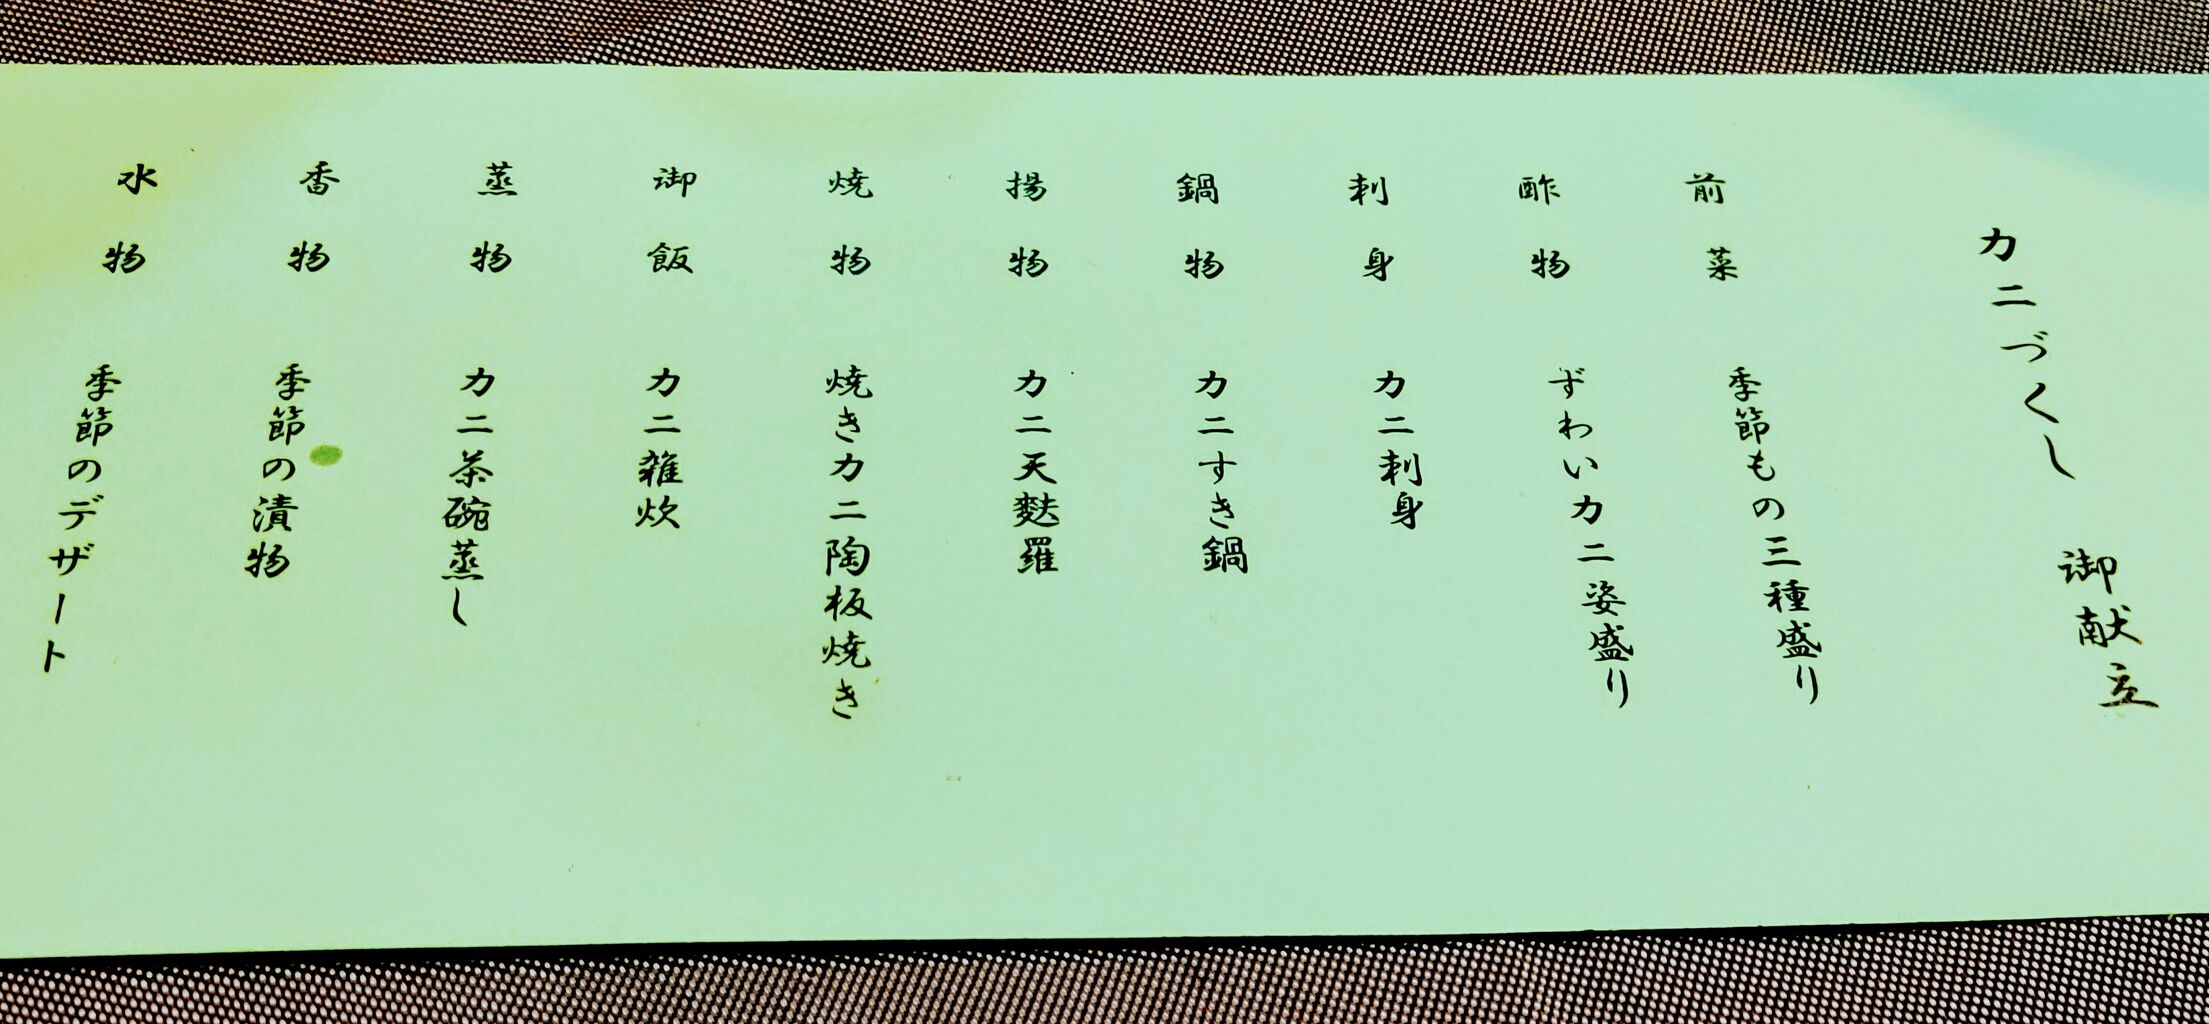 カニづくし 御献立
前菜 季節もの三種盛り
酢物 ずわいカニ姿盛り
刺身 カニ刺身
鍋物 カニすき鍋
揚物 カニ天麩羅
焼物 焼きカニ陶板焼き
御飯 カニ雑炊
蒸物 カニ茶碗蒸し
香物 季節の漬物
水物 季節のデザート